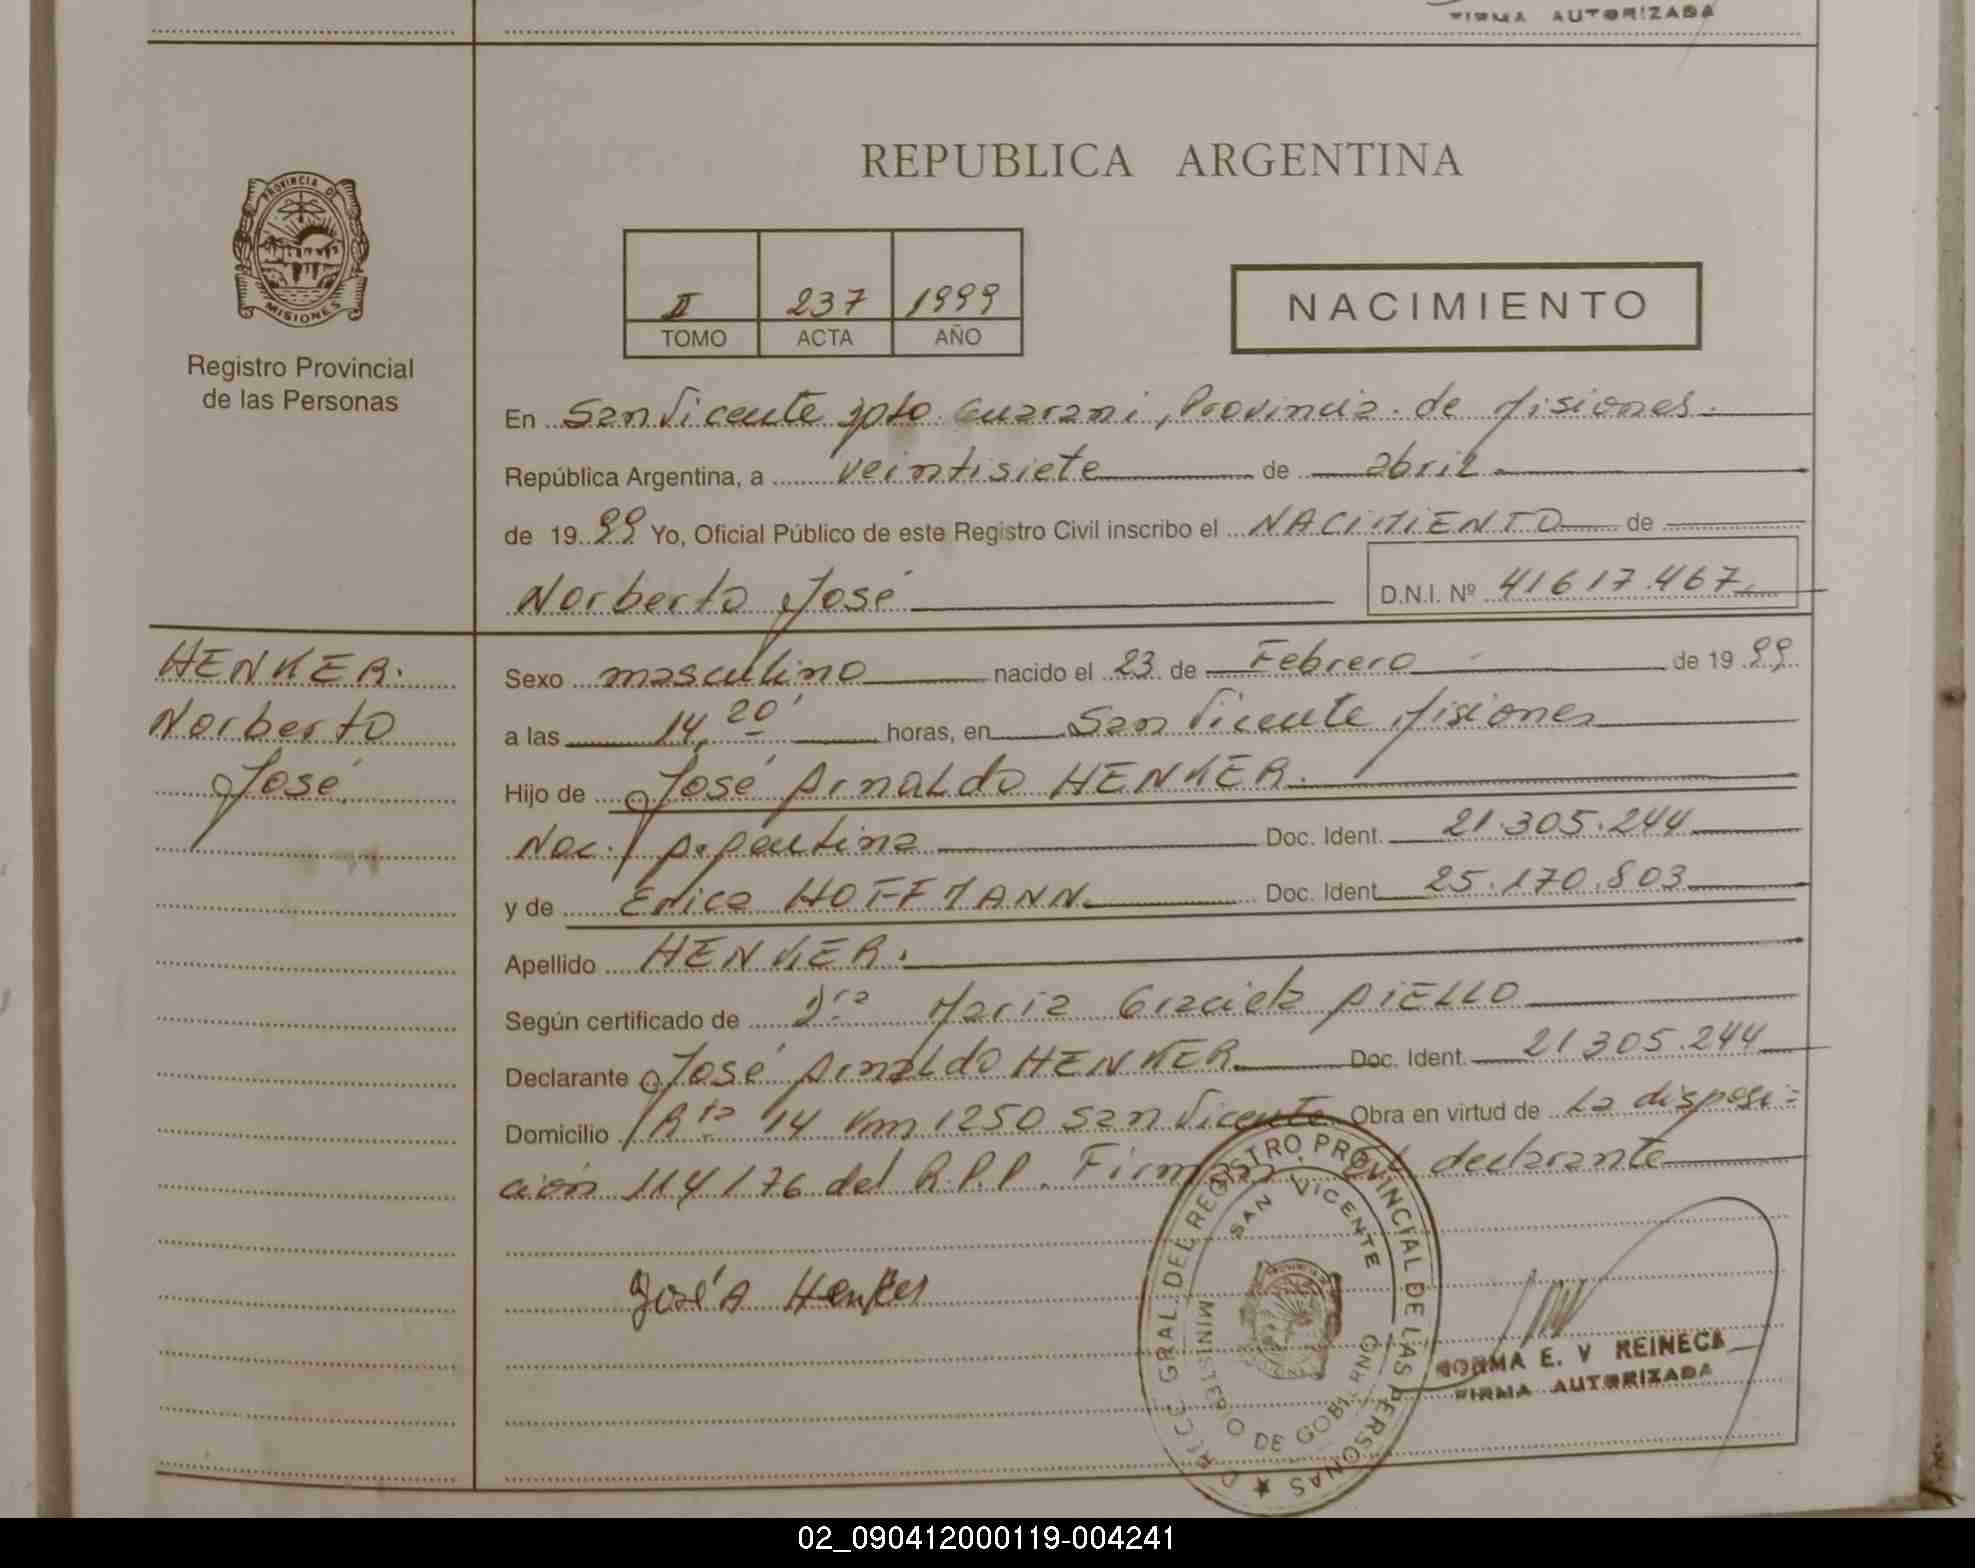 FIRMA AUTORIZADA
REPUBLICA ARGENTINA
PROVINCIA DE
MISIONES
Registro Provincial
de las Personas
II 237 1999
TOMO ACTA AÑO
NACIMIENTO
En San Vicente Dpto Guarani, Provincia de Misiones.
República Argentina, a veintisiete de abril
de 1999 Yo, Oficial Público de este Registro Civil inscribo el NACIMIENTO de
Norberto José D.N.I. Nº 41617.467
HENKER.
Norberto
José
Sexo masculino nacido el 23 de Febrero de 1999
a las 14,20' horas, en San Vicente Misiones
Hijo de José Arnaldo HENKER.
Nac. Argentina Doc. Ident. 21.305.244
y de Erica HOFFMANN. Doc. Ident. 25.170.803
Apellido HENKER.
Según certificado de Dra Maria Graciela AIELLO
Declarante José Arnaldo HENKER Doc. Ident. 21305.244
Domicilio Rta 14 Km 1250 San Vicente Obra en virtud de La disposi=
ción 114/76 del R.P.P. Firman declarante
José A Henker
DIRECC GRAL. DEL REGISTRO PROVINCIAL DE LAS PERSONAS
SAN VICENTE
MINISTERIO DE GOBIERNO
NORMA E. V REINECA
FIRMA AUTORIZADA
02_090412000119-004241